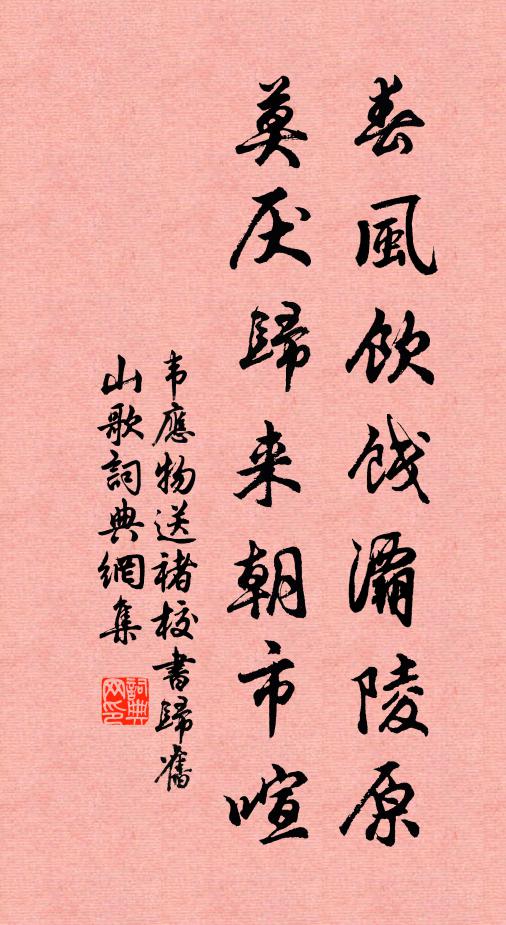 春風飲餞灞陵原
莫厌歸来朝市喧
韦應物送褚校書歸舊
山歌詞典網集
詞典
网印